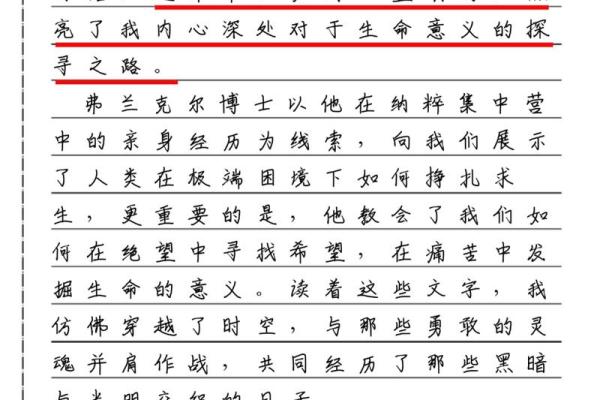 亮了我内心深处对于生命意义的探
寻之路。
弗兰克尔博士以他在纳粹集中营
中的亲身经历为线索，向我们展示
了人类在极端困境下如何挣扎求
生，更重要的是，他教会了我们如
何在绝望中寻找希望，在痛苦中发
掘生命的意义。读着这些文字，我
仿佛穿越了时空，与那些勇敢的灵
魂并肩作战，共同经历了那些黑暗